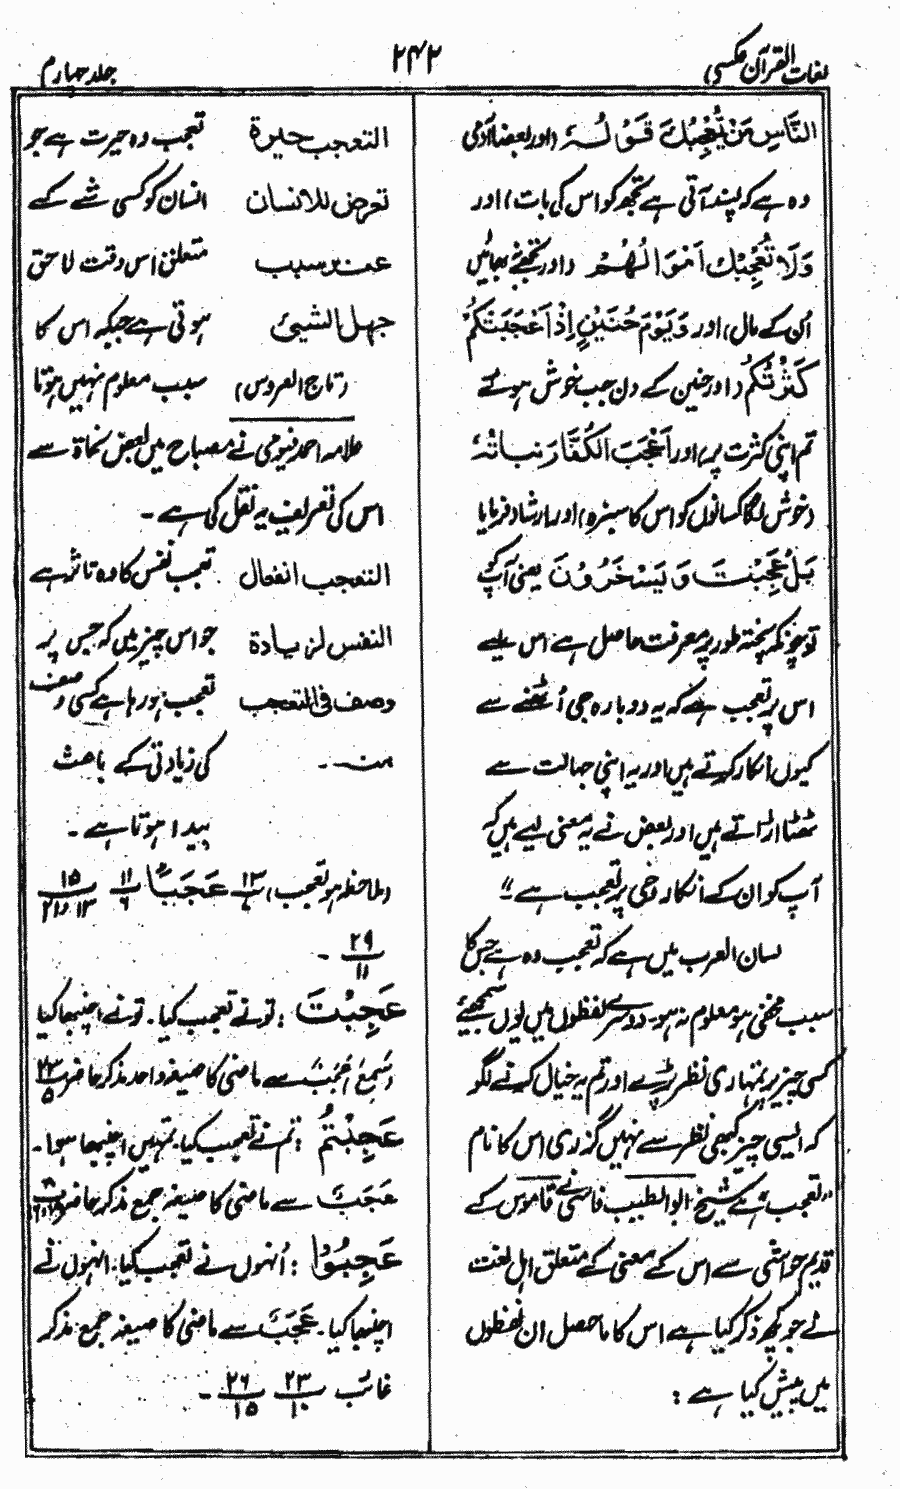 لغات القرآن عکسی
۲۴۲
جلد چہارم
النَّاسِ مَنْ یُّعْجِبُكَ قَوْلُہٗ (اور بعضا آدمی
وہ ہے کہ پسند آتی ہے تجھ کو اس کی بات) اور
وَلَا تُعْجِبْكَ اَمْوَالُهُمْ (اور تجھے نہ بھائیں
اُن کے مال) اور وَیَوْمَ حُنَیْنٍ اِذْ اَعْجَبَتْكُمْ
كَثْرَتُكُمْ (اور حنین کے دن جب خوش ہوئے
تم اپنی کثرت پر) اور اَعْجَبَ الْكُفَّارَ نَبَاتُہٗ
(خوش لگا کسانوں کو اس کا سبزہ) اور ارشاد فرمایا
بَلْ عَجِبْتَ وَیَسْخَرُوْنَ یعنی آپ کو
تو چونکہ پختہ طور پر معرفت حاصل ہے اس لیے
اس پر تعجب ہے کہ یہ دوبارہ جی اُٹھنے سے
کیوں انکار کرتے ہیں اور یہ اپنی جہالت سے
ٹھٹھا اڑاتے ہیں اور بعض نے یہ معنی لیے ہیں کہ
آپ کو ان کے انکار وحی پر تعجب ہے "۔
لسان العرب میں ہے کہ تعجب وہ ہے جس کا
سبب مخفی ہو معلوم نہ ہو۔ دوسرے لفظوں میں یوں سمجھیئے
کسی چیز پر تمہاری نظر پڑے اور تم یہ خیال کرنے لگو
کہ ایسی چیز کبھی نظر سے نہیں گزری اس کا نام
"تعجب" ہے شیخ ابوالطیب فاسی نے قاموس کے
قدیم حواشی سے اس کے معنی کے متعلق اہل لغت
نے جو کچھ ذکر کیا ہے اس کا ماحصل ان لفظوں
میں پیش کیا ہے :
التعجب حیرة تعجب وہ حیرت ہے جو
تعرض للانسان انسان کو کسی شے کے
عند سبب متعلق اس وقت لاحق
جهل الشیئ ہوتی ہے جبکہ اس کا
(تاج العروس) سبب معلوم نہیں ہوتا
علامہ احمد فیومی نے مصباح میں بعض نحاة سے
اس کی تعریف یہ نقل کی ہے ۔
التعجب انفعال تعجب نفس کا وہ تاثر ہے
النفس لزیادة جو اس چیز میں کہ جس پر
وصف فی المتعجب تعجب ہو رہا ہے کسی وصف
منہ ۔ کی زیادتی کے باعث
پیدا ہوتا ہے ۔
(ملاحظہ ہو تعجب) عَجَبًا ۱۱/۶ ۱۵/۱۳ و ۲۱
۲۹/۱۱ ۔
عَجِبْتَ : تو نے تعجب کیا۔ تو نے اچنبھا کیا
(سَمِعَ) عَجَبٌ سے ماضی کا صیغہ واحد مذکر حاضر ۲۳/۵
عَجِبْتُمْ : تم نے تعجب کیا۔ تمہیں اچنبھا ہوا۔
عَجَبٌ سے ماضی کا صیغہ جمع مذکر حاضر
عَجِبُوْا : اُنہوں نے تعجب کیا، انہوں نے
اچنبھا کیا۔ عَجَبٌ سے ماضی کا صیغہ جمع مذکر
غائب ۲۳/۱۰ ۲۶/۱۵ ۔